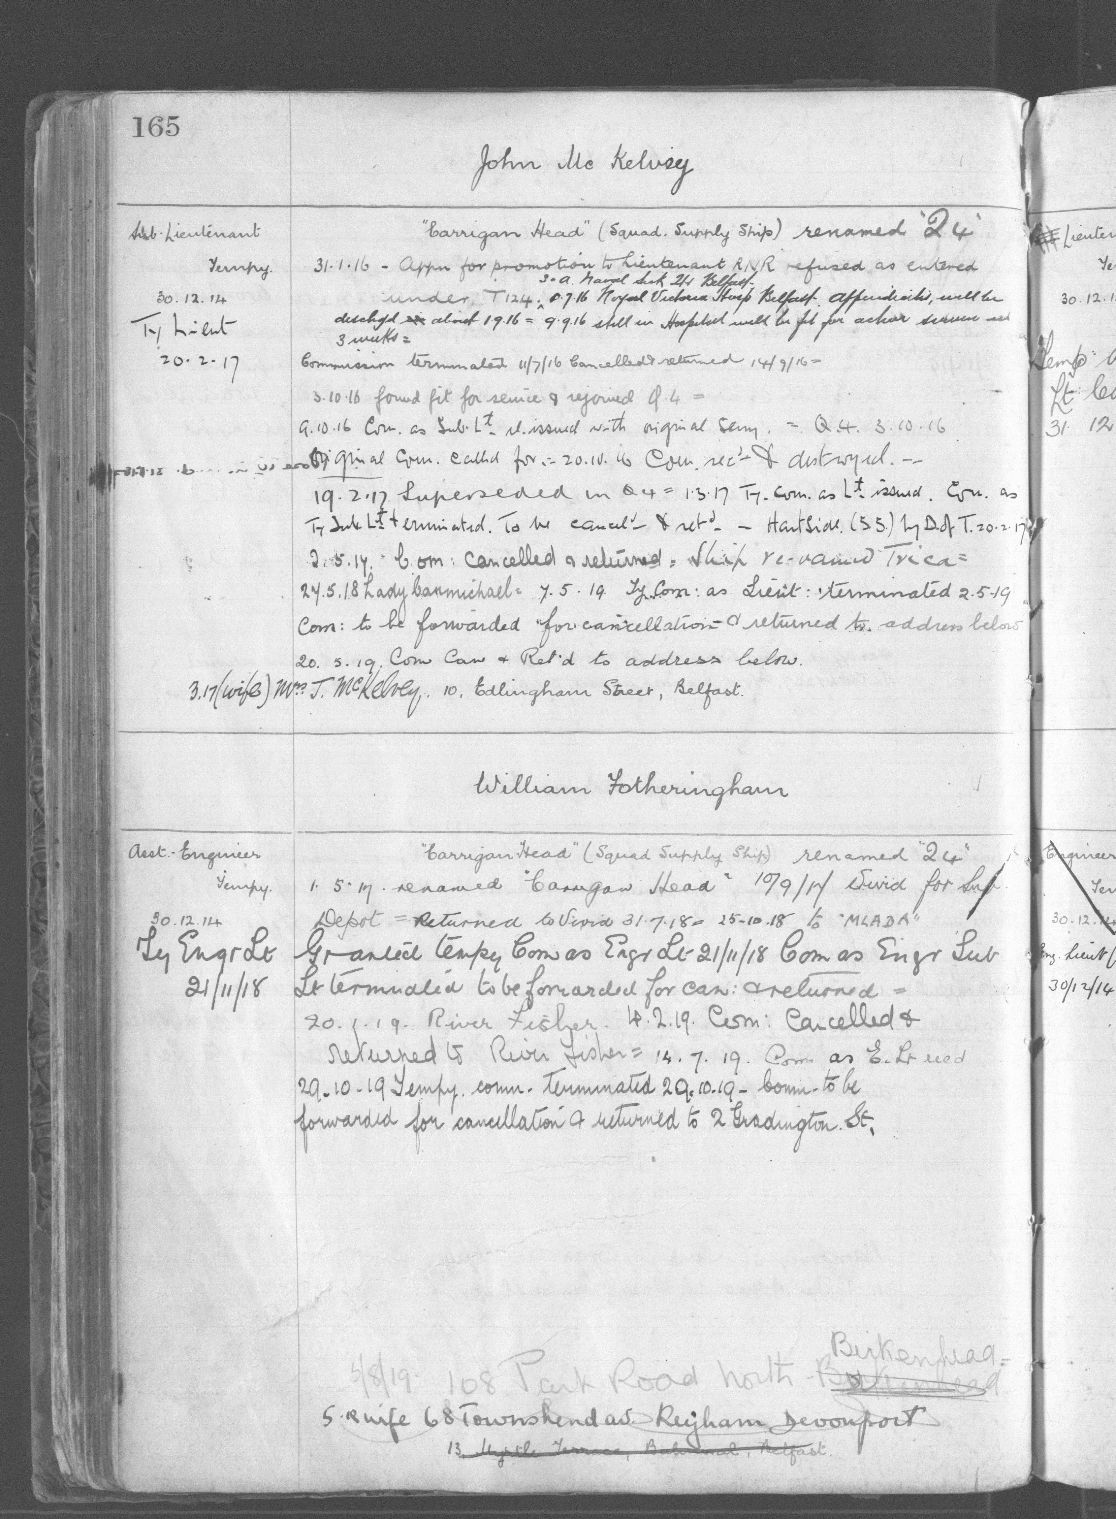 165
John McKelvey
Sub-Lieutenant
Tempy.
30.12.14
Ty Lieut
20.2.17
"Carrigan Head" (Squad. Supply Ship) renamed "Q4"
31.1.16 - Appn for promotion to Lieutenant RNR refused as entered
under T124. 3.a. Naval Sick Qrs Belfast.
.7.16 Royal Victoria Hosp Belfast. Appendicitis, will be
dischgd about 1 9 16 = 9.9.16 still in Hospital will be fit for active service in
3 weeks =
Commission terminated 11/7/16 Cancelled & returned 14/9/16 =
3.10.16 found fit for service & rejoined Q4 =
9.10.16 Com. as Sub Lt re.issued with original Seny. = Q.4. 3.10.16
Original Com. called for. = 20.10.16 Com. rec'd & destroyed. -
19.2.17 Superseded in Q4 = 1.3.17 Ty. Com. as Lt issued. Com. as
Ty Sub Lt terminated. To be cancel'd & ret'd - HartSide (S.S.) by D of T. 20.2.17
2.5.17. Com: cancelled & returned = Ship re-named Trica =
24.5.18 Lady Carmichael = 7.5.19 Ty Com: as Lieut: terminated 2.5.19
Com: to be forwarded for cancellation & returned to address below
20.5.19. Com Can & Ret'd to address below.
3.17 (wife) Mrs J. McKelvey. 10, Edlingham Street, Belfast.
William Fotheringham
Asst.-Engineer
Tempy.
30.12.14
Ty Engr Lt
21/11/18
"Carrigan Head" (Squad Supply Ship) renamed "Q4"
1.5.17. renamed "Carrigan Head" 10/9/17 Vivid for Sub.
Depot = Returned to Vivid 31.7.18 = 25-10.18 to "MLADA"
Granted tempy Com as Engr Lt 21/11/18 Com as Engr Sub
Lt terminated to be forwarded for can: & returned =
20.1.19. River Fisher. .2.19. Com: Cancelled &
returned to River Fisher = 14.7.19. Com as E. Lt
29-10-19 Tempy. comn. terminated 29.10.19 - Comn. to be
forwarded for cancellation & returned to 2 St.
Birkenhead =
5/8/19 108 Park Road North Birkenhead
wife 68 Townshend av. Keyham Devonport
13, Myrtle Terrace, Belfast.
Lieuten
30.12.1
Temp
Lt
31 12
Engineer
30.12.14
Eng. Lieut
30/12/14